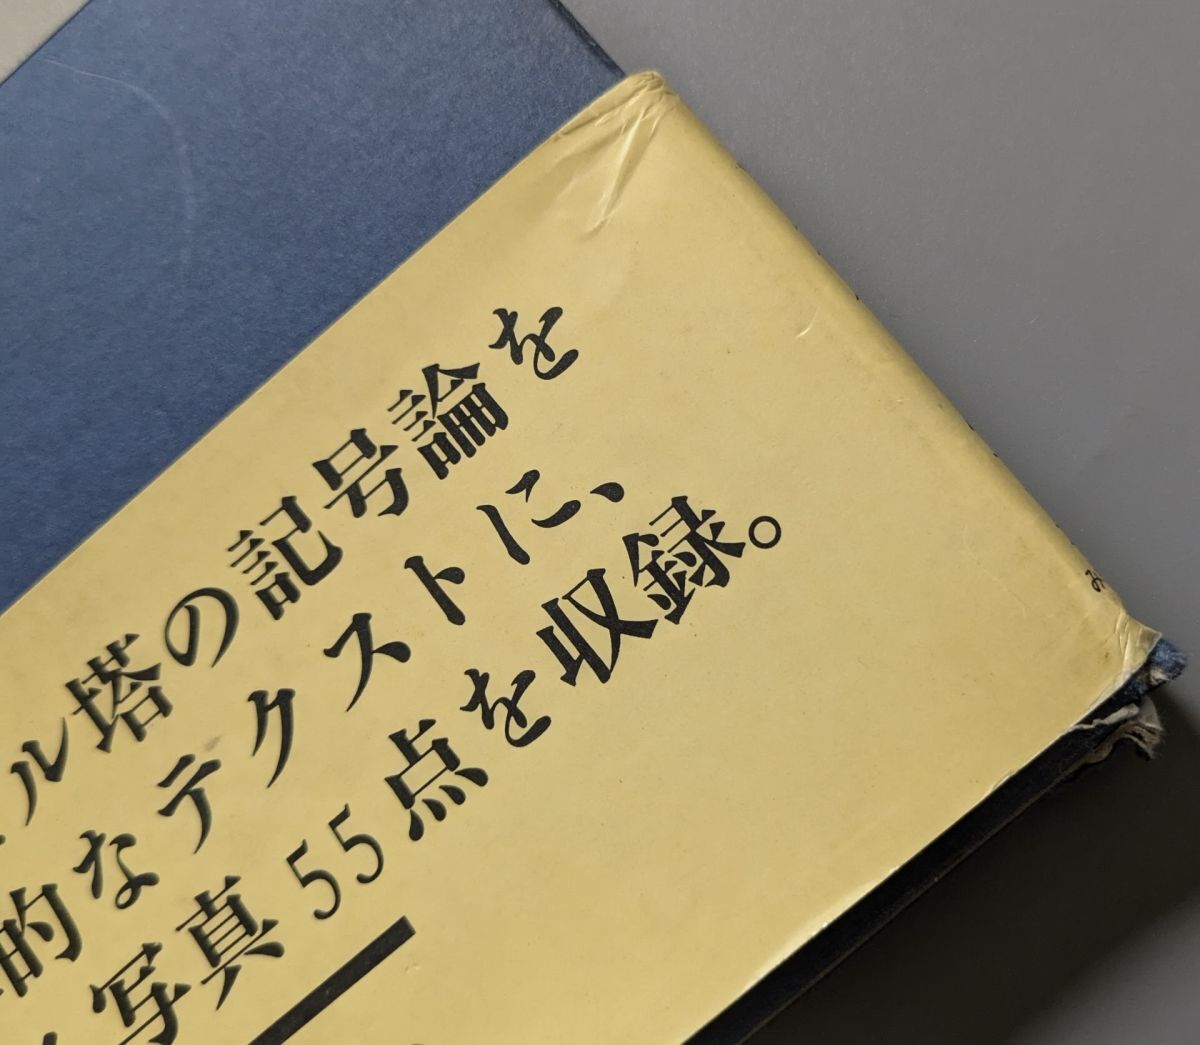 ル塔の記号論を
的なテクストに、
写真55点を収録。
み